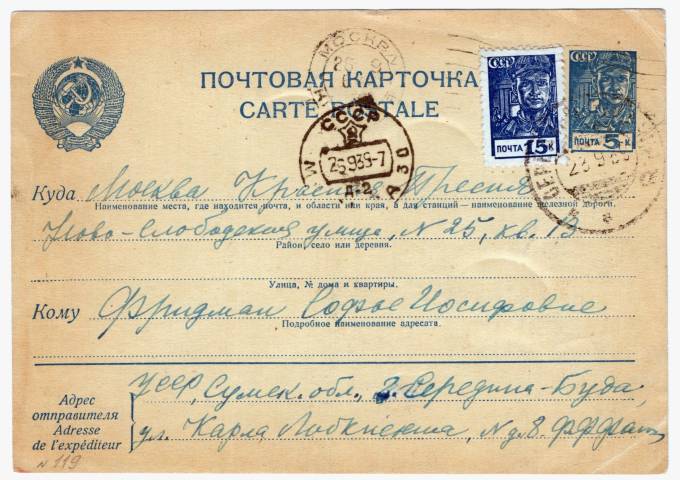 МОСКВА
СССР
СССР
ПОЧТОВАЯ КАРТОЧКА
CARTE POSTALE
ПОЧТА 15 К
ПОЧТА 5 К
СССР
26939-7
Куда Москва Красная Пресня
Наименование места, где находится почта, и области или края, а для станций — наименование железной дороги.
Ново-Слободская улица, N 25, кв. 13
Район, село или деревня.
Улица, № дома и квартиры.
Кому Фридман Софье Иосифовне
Подробное наименование адресата.
Адрес
отправителя
Adresse
de l'expéditeur
УССР, Сумск. обл., г. Середина-Буда,
ул. Карла Либкнехта, N д. 8.
N 119